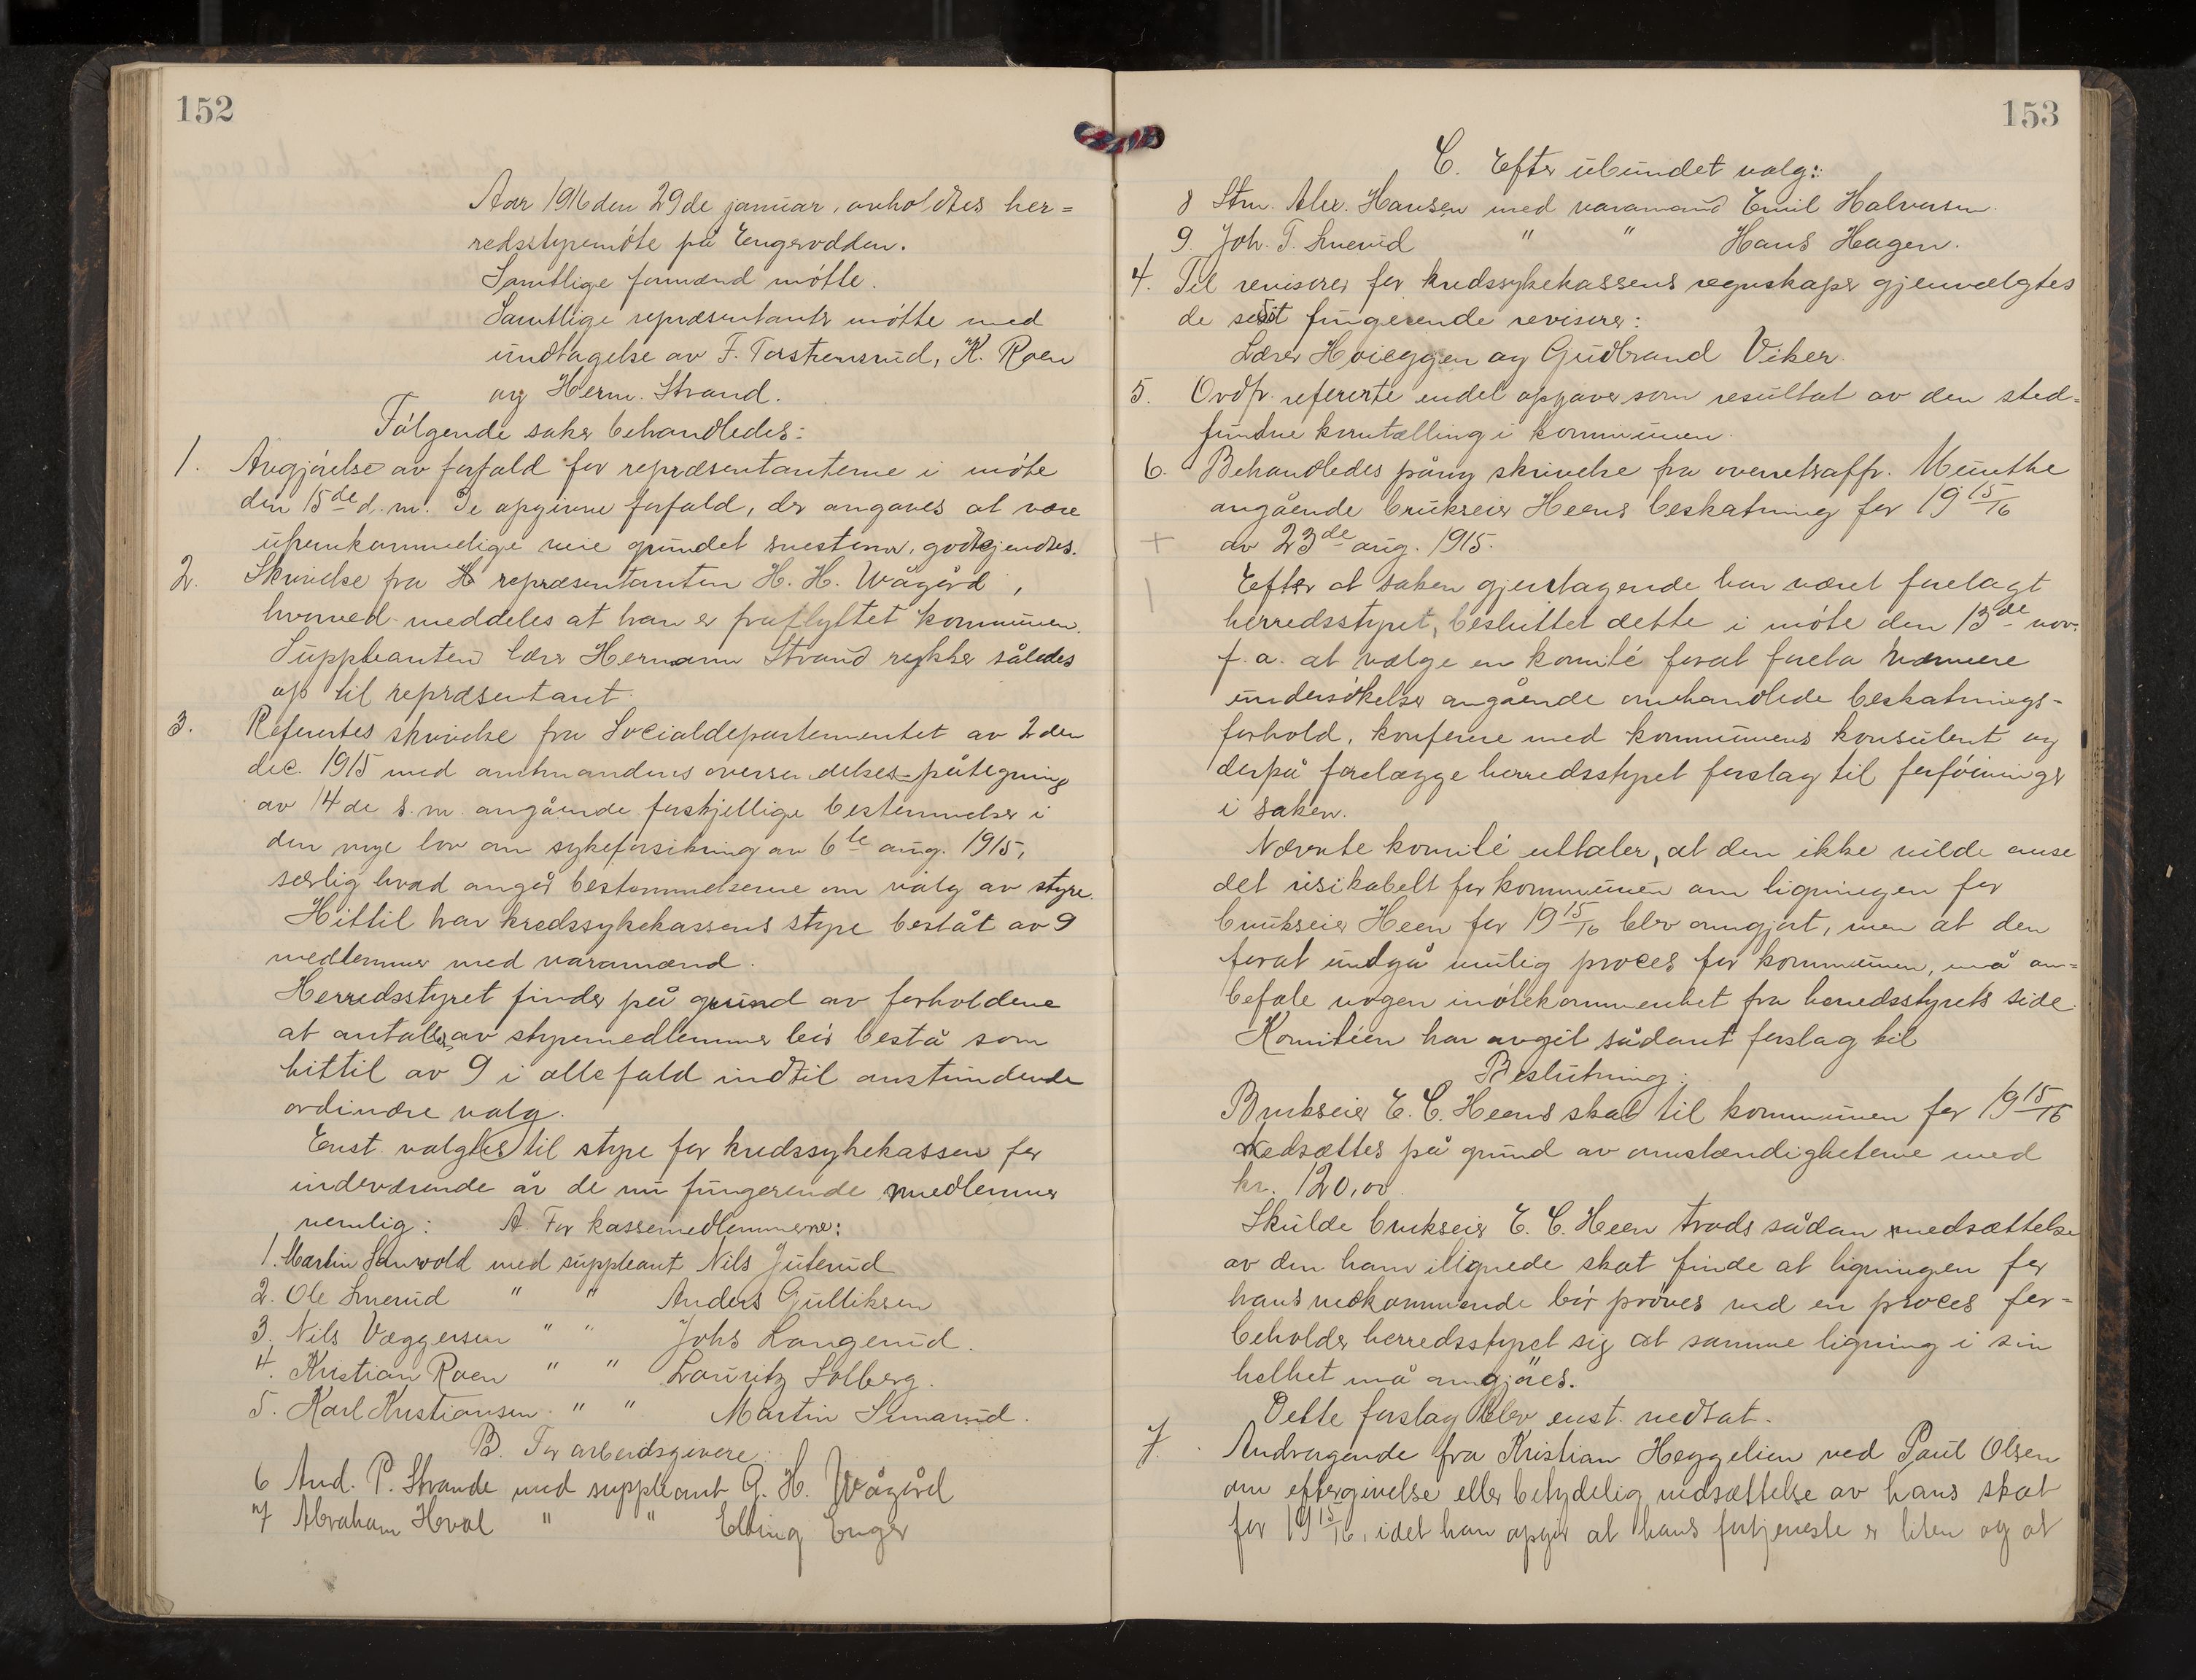 152
Aar 1916 den 29de januar, avholdtes her=
redsstyremöte på Engerodden.
Samtlige formænd mötte.
Samtlige repræsentanter mötte med
undtagelse av F. Torstensrud, K. Roen
og Herm. Strand.
Fölgende saker behandledes:
1. Avgjörelse av forfald for repræsentanterne i möte
den 15de d.m. De opgivne forfald, der angaves at være
ufremkommelige veie grundet snestorm, godkjendtes.
2. Skrivelse fra repræsentanten H. H. Wågård,
hvorved meddeles at han er fraflyttet kommunen.
Suppleanten lærer Hermann Strand rykker således
op til repræsentant.
3. Refertes skrivelse fra Socialdepartementet av 2den
dec. 1915 med amtmandens oversendelses-påtegning
av 14de s.m. angående forskjellige bestemmelser i
den nye lov om sykeforsikring av 6te aug. 1915,
særlig hvad angår bestemmelserne om valg av styre.
Hittil har kredssykekassens styre bestått av 9
medlemmer med varamænd.
Herredsstyret finder på grund av forholdene
at antallet av styremedlemmer bör bestå som
hittil av 9 i alle fald indtil anstundende
ordinære valg.
Enst. valgtes til styre for kredssykekassen for
indeværende år de nu fungerende medlemmer
nemlig: A. For kassemedlemmerne:
1. Martin Sanvold med suppleant Nils Juterud
2. Ole Smerud " " Anders Gulliksen
3. Nils Væggersen " " Johs Langerud.
4. Kristian Roen " " Lauritz Solberg.
5. Karl Kristiansen " " Martin Semmerud.
B. For arbeidsgivere.
6 And. P. Strande med suppleant G. H. Wågård
7 Abraham Hval " " Elling Enger
153
C. Efter ubundet valg:
8 Stm. Alex. Hansen med varamand Emil Halvorsen.
9. Joh. T. Smerud " " Hans Hagen.
4. Til revisorer for kredssykekassens regnskaper gjenvalgtes
de sidst fungerende revisorer:
Lærer Hoieggen og Gudbrand Viker.
5. Ordf. refererte endel opgaver som resultat av den sted=
fundne korntælling i kommunen.
6. Behandledes påny skrivelse fra overretssaff. Munthe
angående brukseier Heens beskatning for 19 15/16
+ av 23de aug. 1915.
Efter at saken gjentagende har været forelagt
herredsstyret, besluttet dette i möte den 13de nov.
f.a. at vælge en komité forat foreta nærmere
undersökelser angående omhandlede beskatnings-
forhold, konferere med kommunens konsulent og
derpå forelægge herredsstyret forslag til forföininger
i saken.
Nævnte komité uttaler, at den ikke vilde anse
det risikabelt for kommunen om ligningen for
brukseier Heen for 19 15/16 blev omgjort, men at den
forat undgå mulig proces for kommunen, må an=
befale nogen imötekommenhet fra herredsstyrets side.
Komitéen har avgit sådant forslag til
Beslutning:
Brukseier E. C. Heens skat til kommunen for 19 15/16
nedsættes på grund av omstændigheterne med
kr. 120,00.
Skulde brukseier E. C. Heen trods sådan nedsættelse
av den ham ilignede skat finde at ligningen for
hans vedkommende bör pröves ved en proces for=
beholder herredsstyret sig at samme ligning i sin
helhet må omgjöres.
Dette forslag blev enst. vedtat.
7. Andragende fra Kristian Heggelien ved Paul Olsen
om eftergivelse eller betydelig nedsættelse av hans skat
for 19 15/16, idet han opgir at hans fortjeneste er liten og at